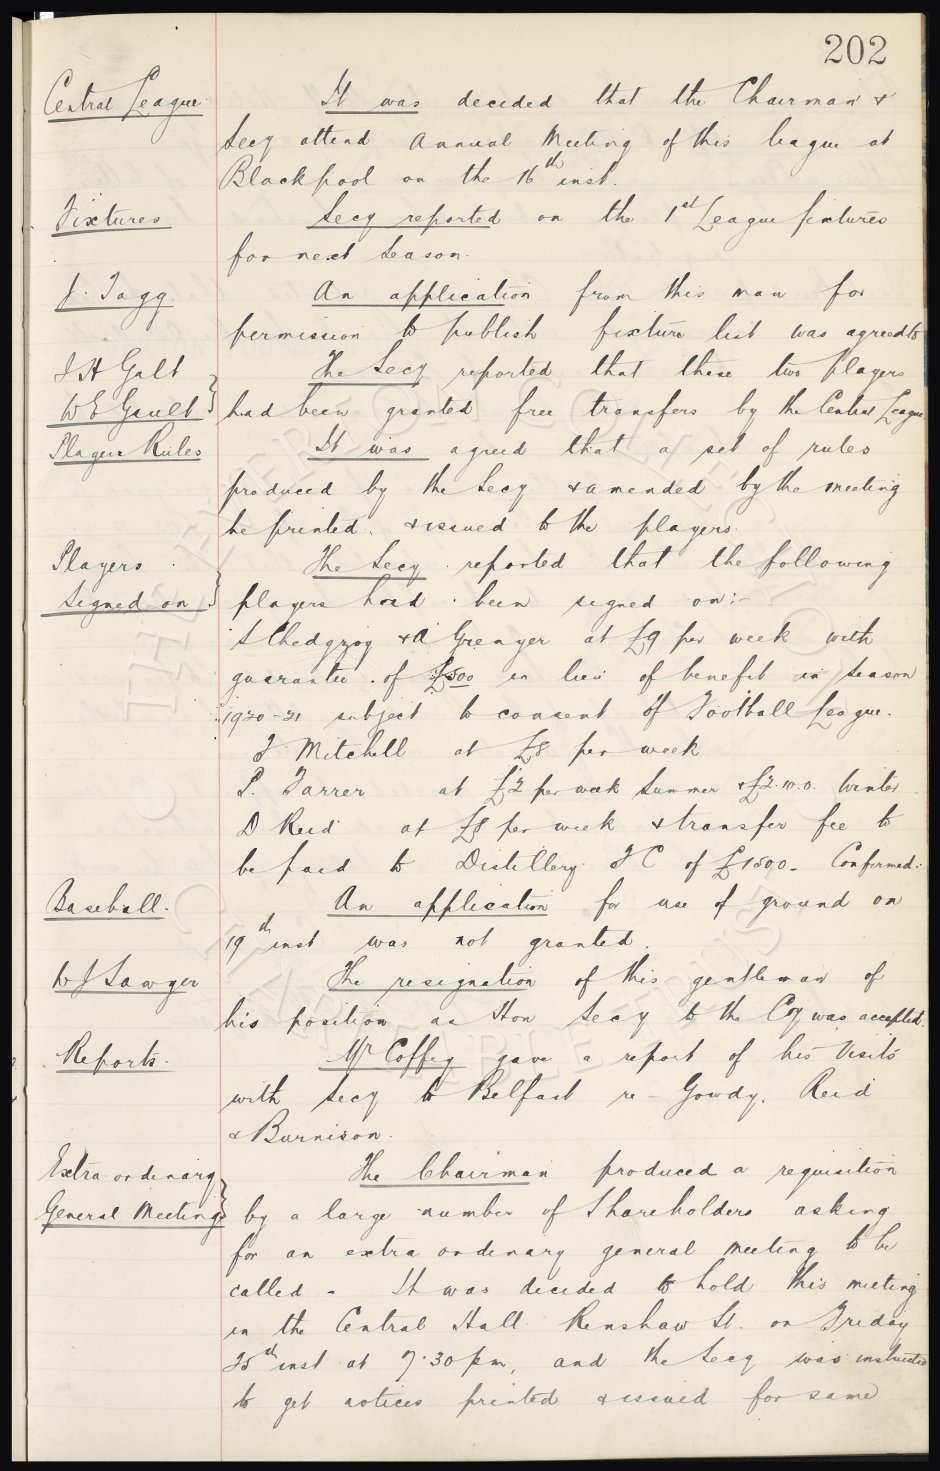 202
Central League. It was decided that the Chairman &
Secy attend Annual Meeting of this league at
Blackpool on the 16th inst.
Fixtures Secy reported on the 1st League fixtures
for next season.
J. Tagg. An application from this man for
permission to publish fixture list was agreed to
J H Galt The Secy reported that these two players
W E Gault } had been granted free transfers by the Central League
Players Rules It was agreed that a set of rules
produced by the Secy & amended by the meeting
be printed & issued to the players.
Players The Secy reported that the following
Signed on } players had been signed on:-
S Chedgzoy & A Grenyer at £9 per week with
guarantee of £500 in lieu of benefit in season
1920-21 subject to consent of Football League.
F Mitchell at £8 per week
P. Farrer at £2 per week Summer & £2.10.0. Winter
D Reid at £8 per week & transfer fee to
be paid to Distillery F C of £1500 - Confirmed.
Baseball. An application for use of ground on
19th inst was not granted.
W J Sawyer The resignation of this gentleman of
his position as Hon Secy to the Coy was accepted.
Reports. Mr Coffey gave a report of his visits
with Secy to Belfast re - Gowdy, Reid
& Burnison.
Extra ordinary The Chairman produced a requisition
General Meeting } by a large number of Shareholders asking
for an extra ordinary general meeting to be
called - It was decided to hold this meeting
in the Central Hall Renshaw St. on Friday
25th inst at 7.30 pm, and the Secy was instructed
to get notices printed & issued for same